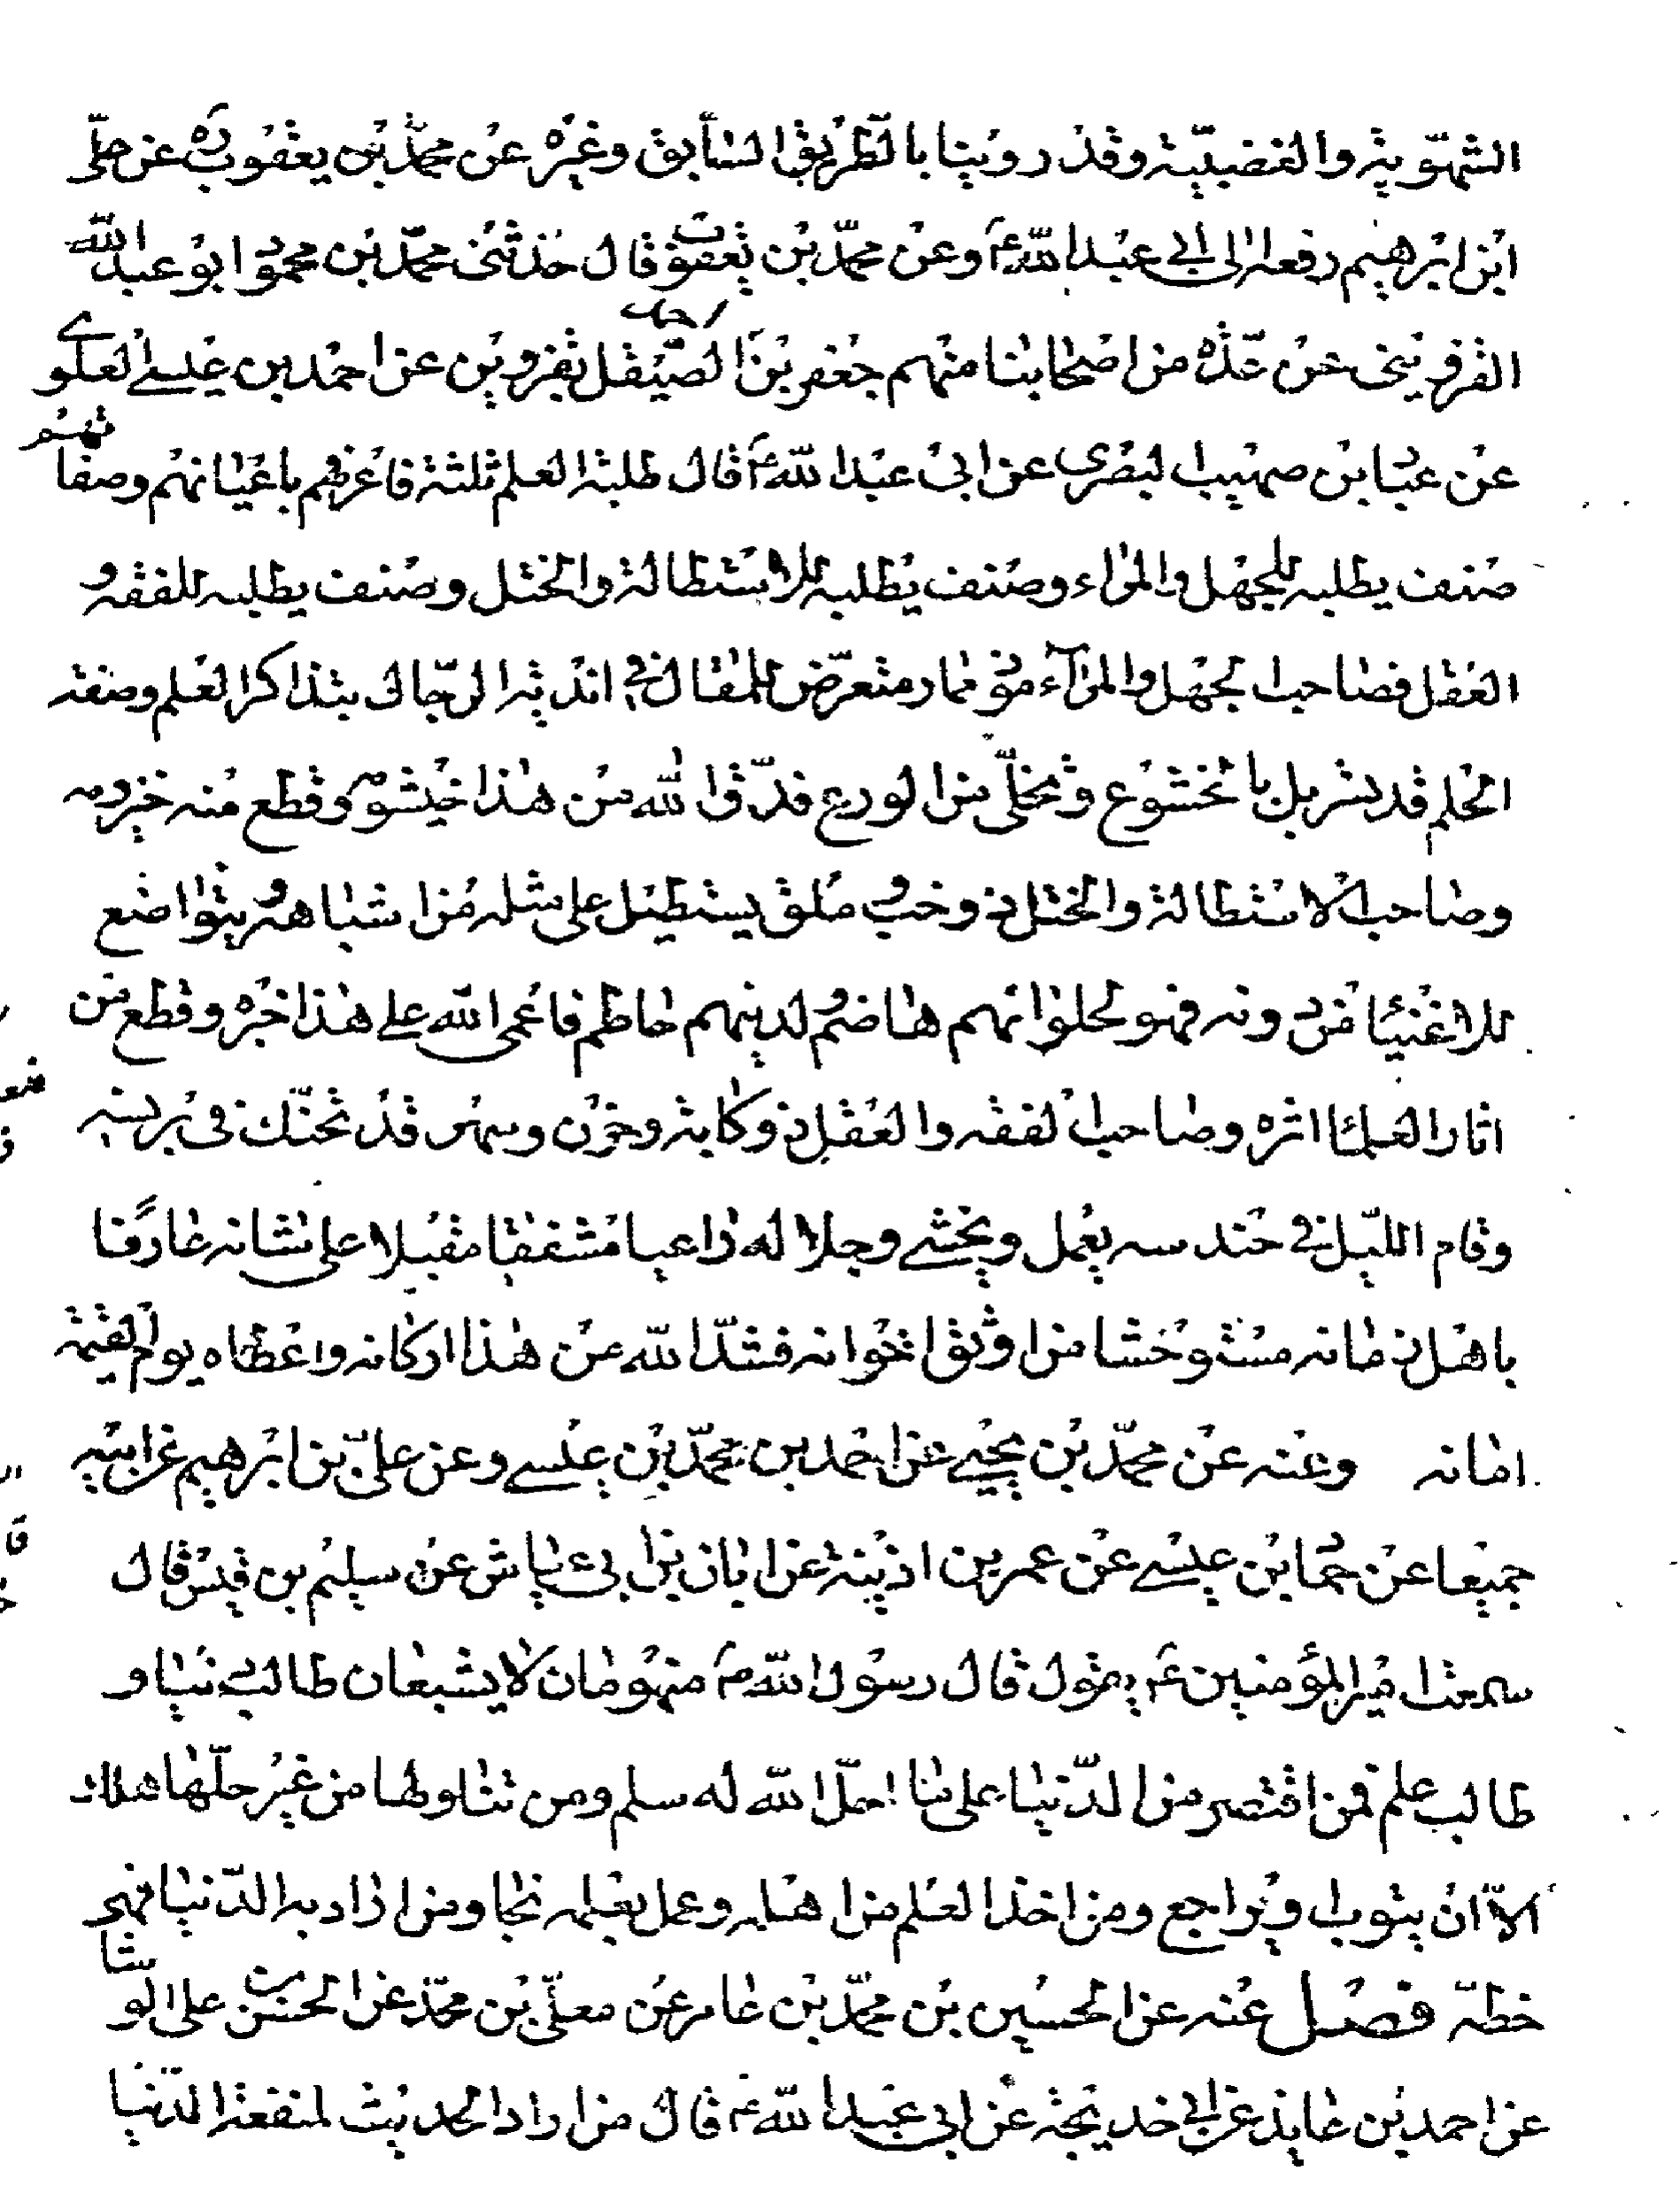 الشهوية والغضبيّة وقد روينا بالطريق السابق وغيره عن محمّد بن يعقوب ره عن علي
ابن ابرهيم رفعه الى ابي عبد الله ع وعن محمّد بن يعقوب قال حدثني محمّد بن محمود ابو عبد الله
القزويني عن عدّة من اصحابنا منهم جعفر بن احمد الصيقل بقزوين عن احمد بن عيسى العلوي
عن عباد بن صهيب البصري عن ابي عبد الله ع قال طلبة العلم ثلثة فاعرفهم باعيانهم وصفاتهم
صنف يطلبه للجهل والمراء وصنف يطلبه للاستطالة والختل وصنف يطلبه للفقه و
العقل فصاحب الجهل والمرآء موذ ممار متعرّض للمقال في اندية الرّجال بتذاكر العلم وصفة
الحلم قد تسربل بالخشوع وتخلّى من الورع فدقّ الله من هذا خيشومه وقطع منه حيزومه
وصاحب الاستطالة والختل ذو خبّ وملق يستطيل على مثله من اشباهه ويتواضع
للاغنيا من دونه فهو لحلوائهم هاضم ولدينهم حاطم فاعمى الله على هذا خبره وقطع من
اثار العلما اثره وصاحب الفقه والعقل ذو كابة وحزن وسهر قد تحنّك في برنسه
وقام الليل في حندسه يعمل ويخشى وجلا له داعيا مشفقا مقبلا على شانه عارفا
باهل زمانه مستوحشا من اوثق اخوانه فشدّ الله من هذا اركانه واعطاه يوم القيمة
امانه وعنه عن محمّد بن يحيى عن احمد بن محمّد بن عيسى وعن علي بن ابرهيم عن ابيه
جميعا عن حماد بن عيسى عن عمر بن اذينة عن ابان بن ابي عياش عن سليم بن قيس قال
سمعت امير المؤمنين ع يقول قال رسول الله ص منهومان لا يشبعان طالب دنيا و
طالب علم فمن اقتصر من الدّنيا على ما احلّ الله له سلم ومن تناولها من غير حلّها هلك
الاّ ان يتوب او يراجع ومن اخذ العلم من اهله وعمل بعلمه نجا ومن اراد به الدّنيا فهي
حظه فصل عنه عن الحسين بن محمّد بن عامر عن معلّى بن محمّد عن الحسن بن علي الوشا
عن احمد بن عايذ عن ابي خديجة عن ابي عبد الله ع قال من اراد الحديث لمنفعة الدّنيا